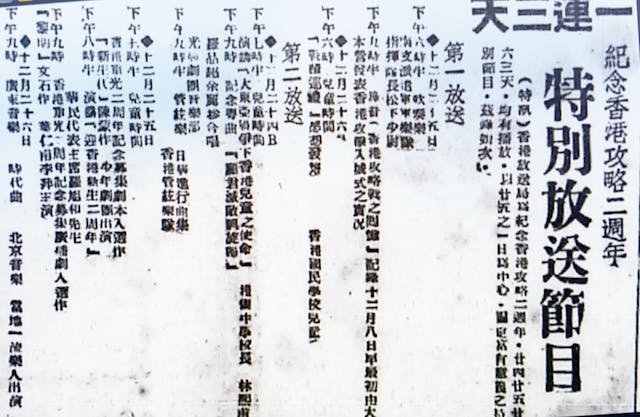 一連三天
紀念香港攻略二週年
特別放送節目
(特訊)香港放送局為紀念香港攻略二週年,廿四廿五
六三天,均有播放,以廿五之一日為中心,
別節目,茲錄如次:
第一放送
◆十二月二十五日
下午六時半 吹奏樂
指揮隊長松下少尉
下午九時半 錄音「香港攻略戰之回憶」記錄十二月八日早最初由大
本營發表香港攻擊入城式之實況
◆十二月二十六日
下午六時 兒童時間 香港國民學校兒童
第二放送
◆十二月二十四日
下午七時半 兒童時間
演講「大東亞戰爭下香港兒童之使命」 港僑中學校長
下午九時 紀念粵曲
下午九時半 管絃樂 日華進行曲集
香港管絃樂隊
◆十二月二十五日
下午七時半 兒童時間
香港重光二周年紀念募集劇本入選作
「新生代」陳蒙作 少年劇團出演
下午八時半 演講「迎香港新生二周年」
華民代表主席羅旭和先生
下午九時 香港重光二周年紀念募集廣播劇入選作
「黎明」文石作
◆十二月二十六日
下午九時 廣東音樂 時代曲 北京音樂 當地一流樂人出演